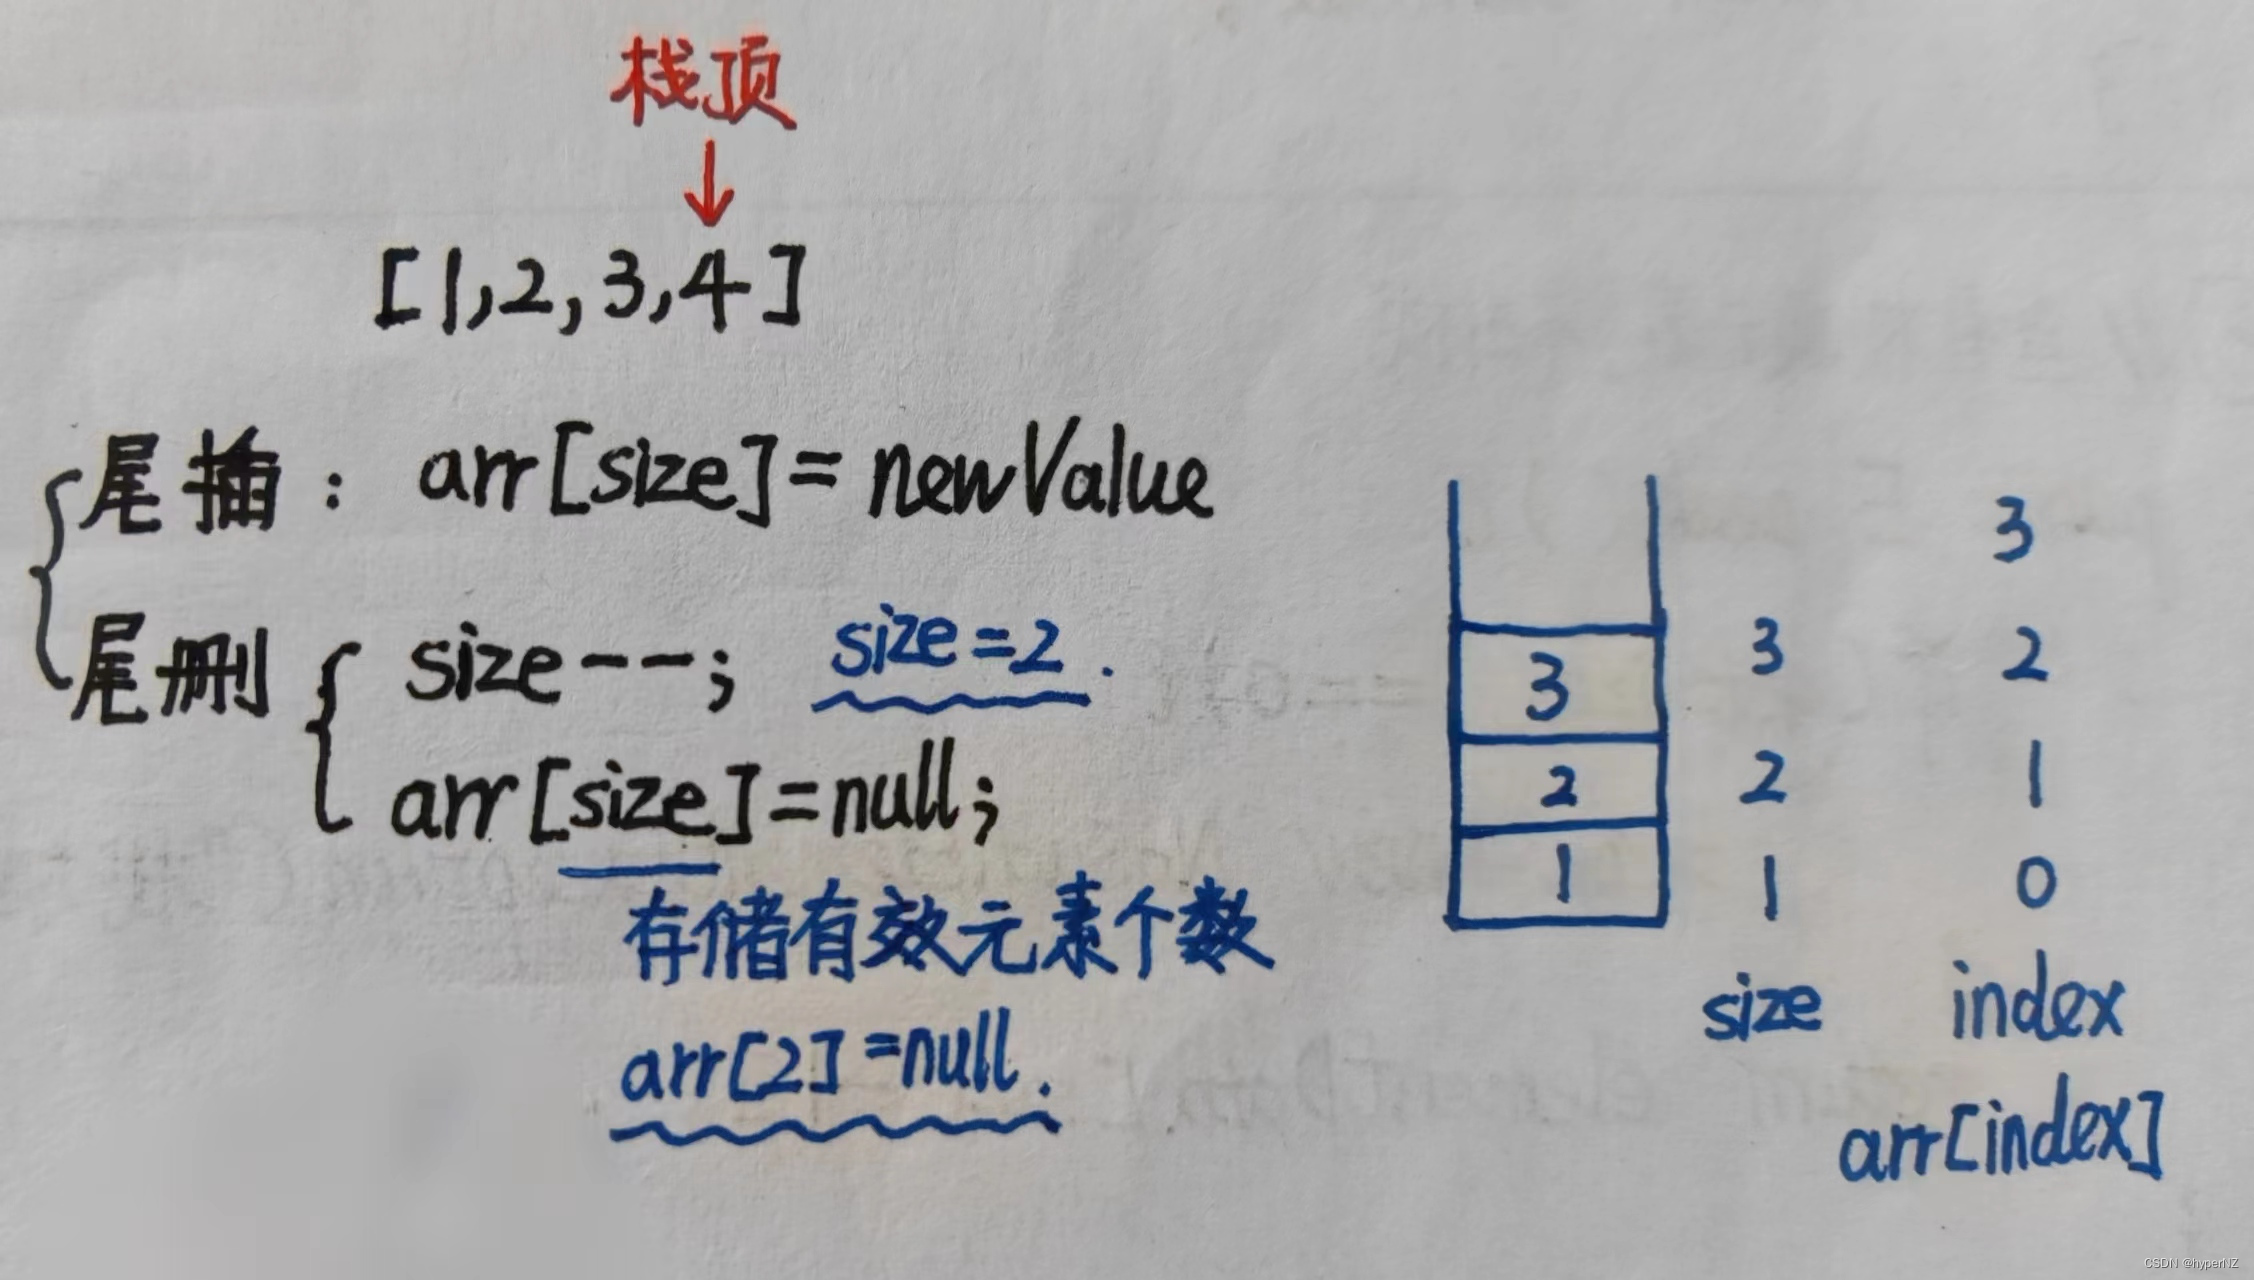 栈顶
[1,2,3,4]
尾插: arr[size]=newValue
尾删 size--; size=2.
arr[size]=null;
存储有效元素个数
arr[2]=null.
3
3 3 2
2 2 1
1 1 0
size index
arr[index]
CSDN @hyperNZ